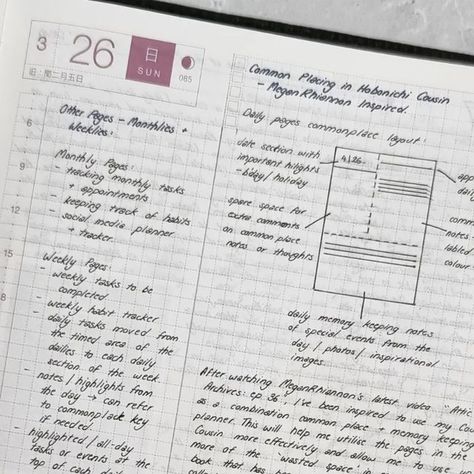 3 26 日 SUN 085
旧・閏二月五日
Other Pages - Monthlies +
Weeklies:
6
Monthly Pages:
- tracking monthly tasks
+ appointments
- keeping track of habits
- social media planner
+ tracker.
9
12
15
Weekly Pages:
- weekly tasks to be
completed
- weekly habit tracker
- daily tasks moved from
the timed area of the
dailies to each daily
section of the week.
- notes/highlights from
the day → can refer
to commonplace key
if needed.
- highlighted/all-day
tasks or events at the
top of each
8
Common Placing in Hobonichi Cousin
- MeganRhiannon Inspired.
Daily pages commonplace layout:
date section with
important hilights
- bday/holiday
4|26
spare space for
extra comments
on common place
notes or thoughts
daily memory keeping notes
of special events from the
day / photos / inspirational
images.
After watching MeganRhiannon's latest video
Archives: ep 36, I've been inspired to use my
as a combination common place + memory
planner. This will help me utilise the pages in the
Cousin more effectively and allow me to use
more of the 'wasted' space in
book that has